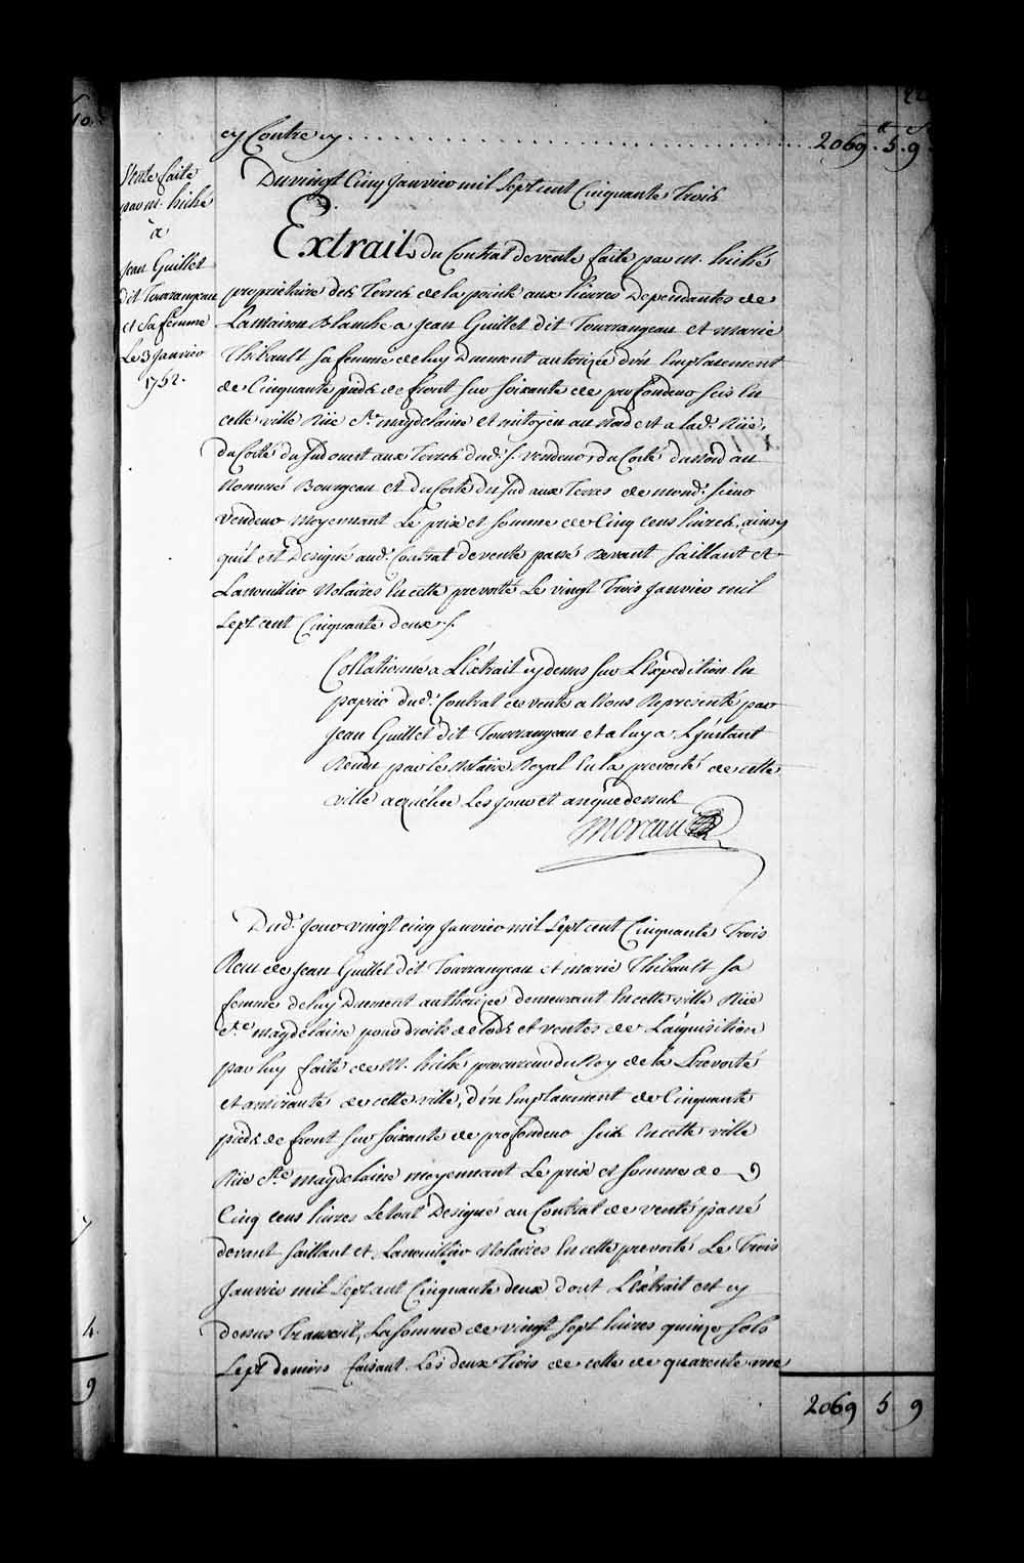 cy Contre cy . . . . . . . . . . . . . . . . . . . . 2069 . 5 . 9
Vente faite
par m. hiché
a
Jean Guillet
dit Tourrangeau
et Sa femme
Le 3 Janvier
1752.
Du vingt Cinq Janvier mil Sept cent Cinquante Trois
Extrait du Contrat de vente faite par m. hiché
proprietaire des Terres de la pointe aux lievres Dependantes de
La maison Blanche a Jean Guillet dit Tourrangeau et marie
Thibault sa femme de luy Duement autorizée d'un Emplacement
de Cinquante pieds de front sur soixante de profondeur scis En
cette ville Rüe Ste. magdelaine et mitoyen au Nord est a lad. Rüe,
du Costé du Sud ouest aux Terres dud. s. vendeur, du Costé du Nord au
Nommé Bourgeau et du Costé du Sud aux Terres de mond. sieur
vendeur moyennant Le prix et somme de Cinq Cens livres, ainsy
qu'il est Designé aud. Contrat de vente passé devant Saillant et
Lanouillier Notaires En cette prevosté Le vingt Trois Janvier mil
Sept cent Cinquante deux /.
Collationné a L'extrait cy dessus sur L'Expedition En
papier dud. Contrat de vente a Nous Representé par
Jean Guillet dit Tourrangeau et a luy a L'jnstant
Rendu par le Notaire Royal En la prevosté de cette
ville a quebec Les Jour et an que dessus
Moreau
Dud. Jour vingt cinq Janvier mil Sept cent Cinquante Trois
Receu de Jean Guillet dit Tourrangeau et marie Thibault sa
femme de luy Duement authorizée demeurant En cette ville Rüe
Ste. magdelaine pour droits de Lods et ventes de L'aquisition
par luy faite de M. hiché procureur du Roy de la Prevosté
et amirauté de cette ville, d'un Emplacement de Cinquante
pieds de front sur soixante de profondeur scis En cette ville
Rüe Ste. magdelaine moyennant Le prix et somme de
Cinq Cens livres Le tout Designé au Contrat de vente passé
devant Saillant et Lanouillier Notaires En cette prevosté Le Trois
Janvier mil Sept cent Cinquante deux dont L'extrait est cy
dessus Transcrit, La somme de vingt sept livres quinze sols
Sept deniers faisant Les deux Tiers de celle de quarente une
2069 5 9